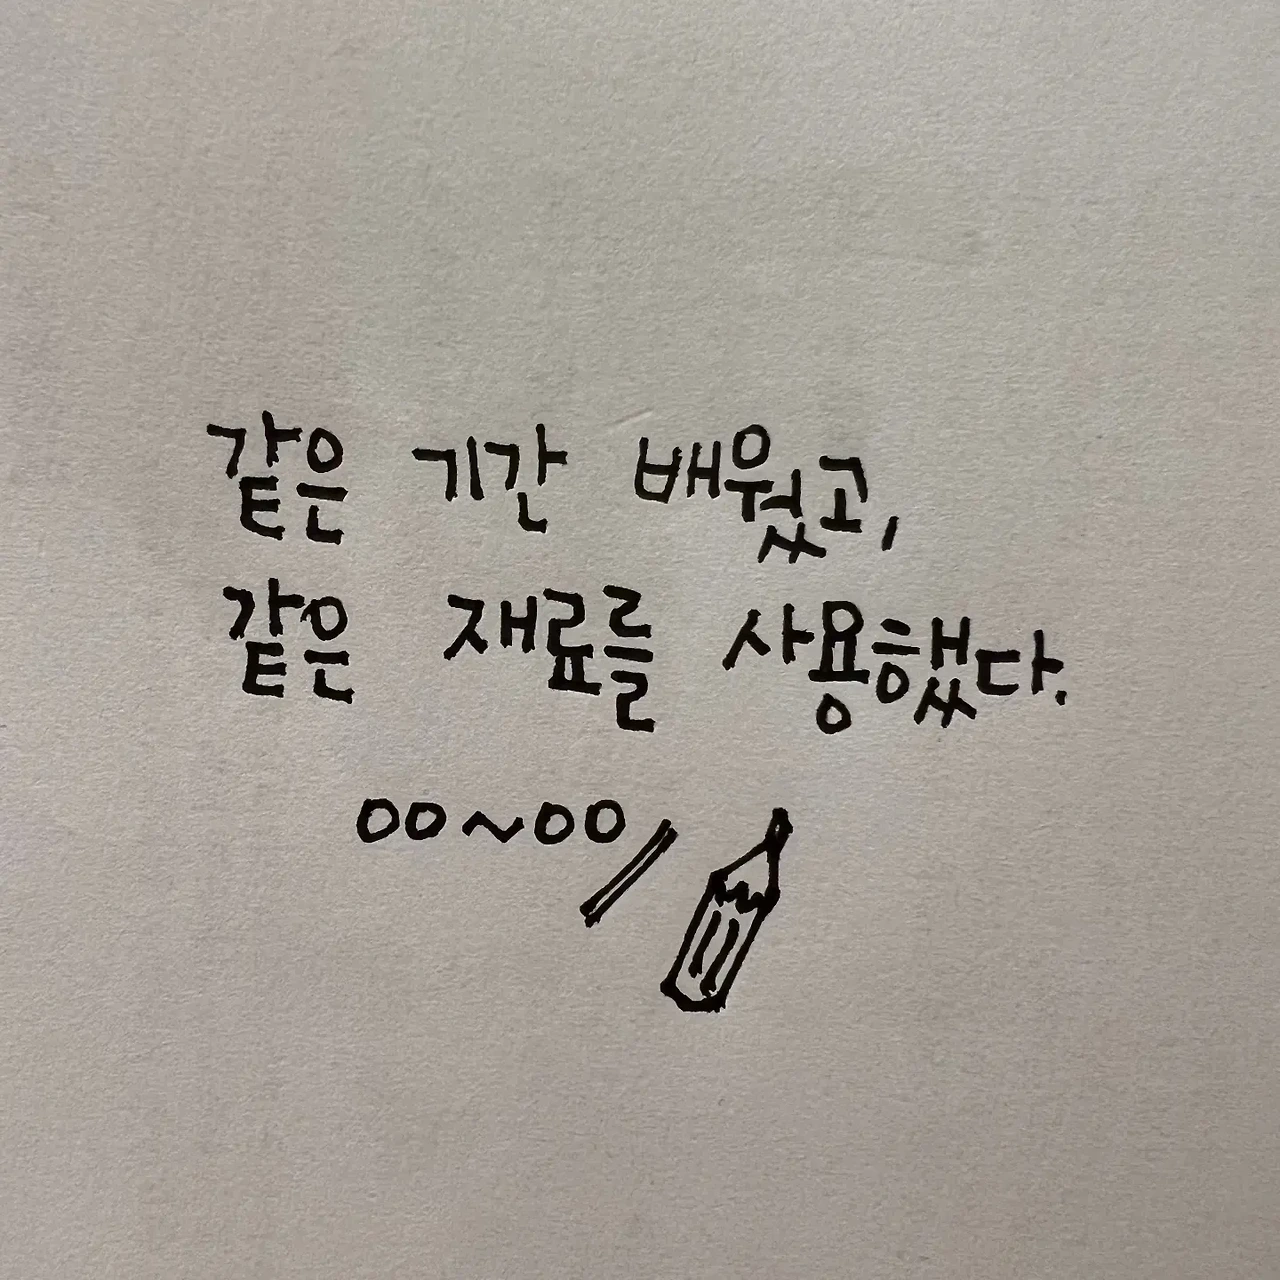 같은 기간 배웠고,
같은 재료를 사용했다.
00~00